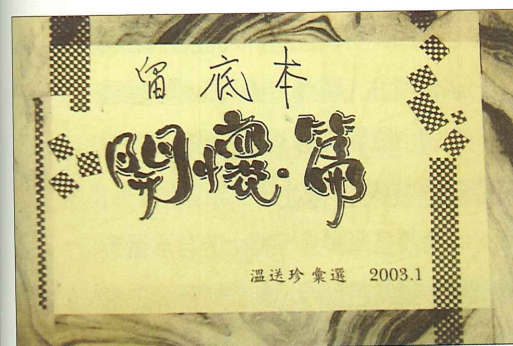 留底本
開懷·篇
溫送珍 彙選 2003.1